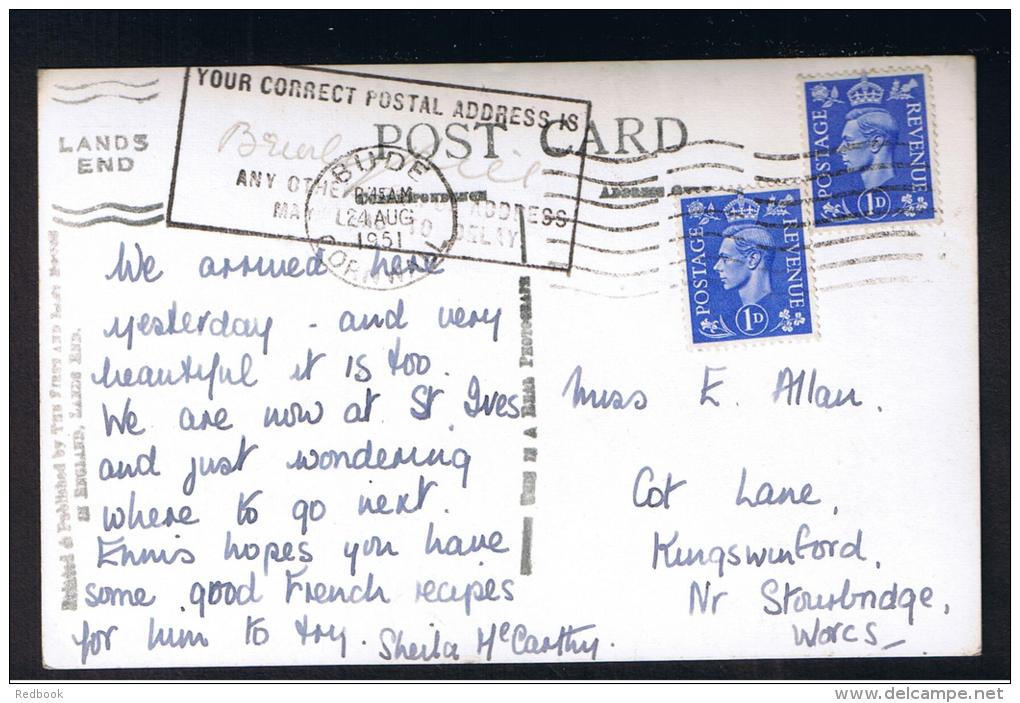 LANDS
END
YOUR CORRECT POSTAL ADDRESS IS
ANY OTHER ADDRESS
MAY TO DELAY
BUDE
CORNWALL
AM
24 AUG
1951
POST CARD
CORRESPONDENCE
ADDRESS ONLY
POSTAGE REVENUE
1D
POSTAGE REVENUE
1D
Printed & Published by THE FIRST AND LAST HOUSE
IN ENGLAND, LANDS END.
THIS IS A REAL PHOTOGRAPH
We arrived here
yesterday - and very
beautiful it is too.
We are now at St Ives
and just wondering
where to go next.
Ennis hopes you have
some good French recipes
for him to try.
Sheila McCarthy.
Miss E. Allan.
Cot Lane,
Kingswinford,
Nr Stourbridge,
Worcs
Redbook
www.delcampe.net